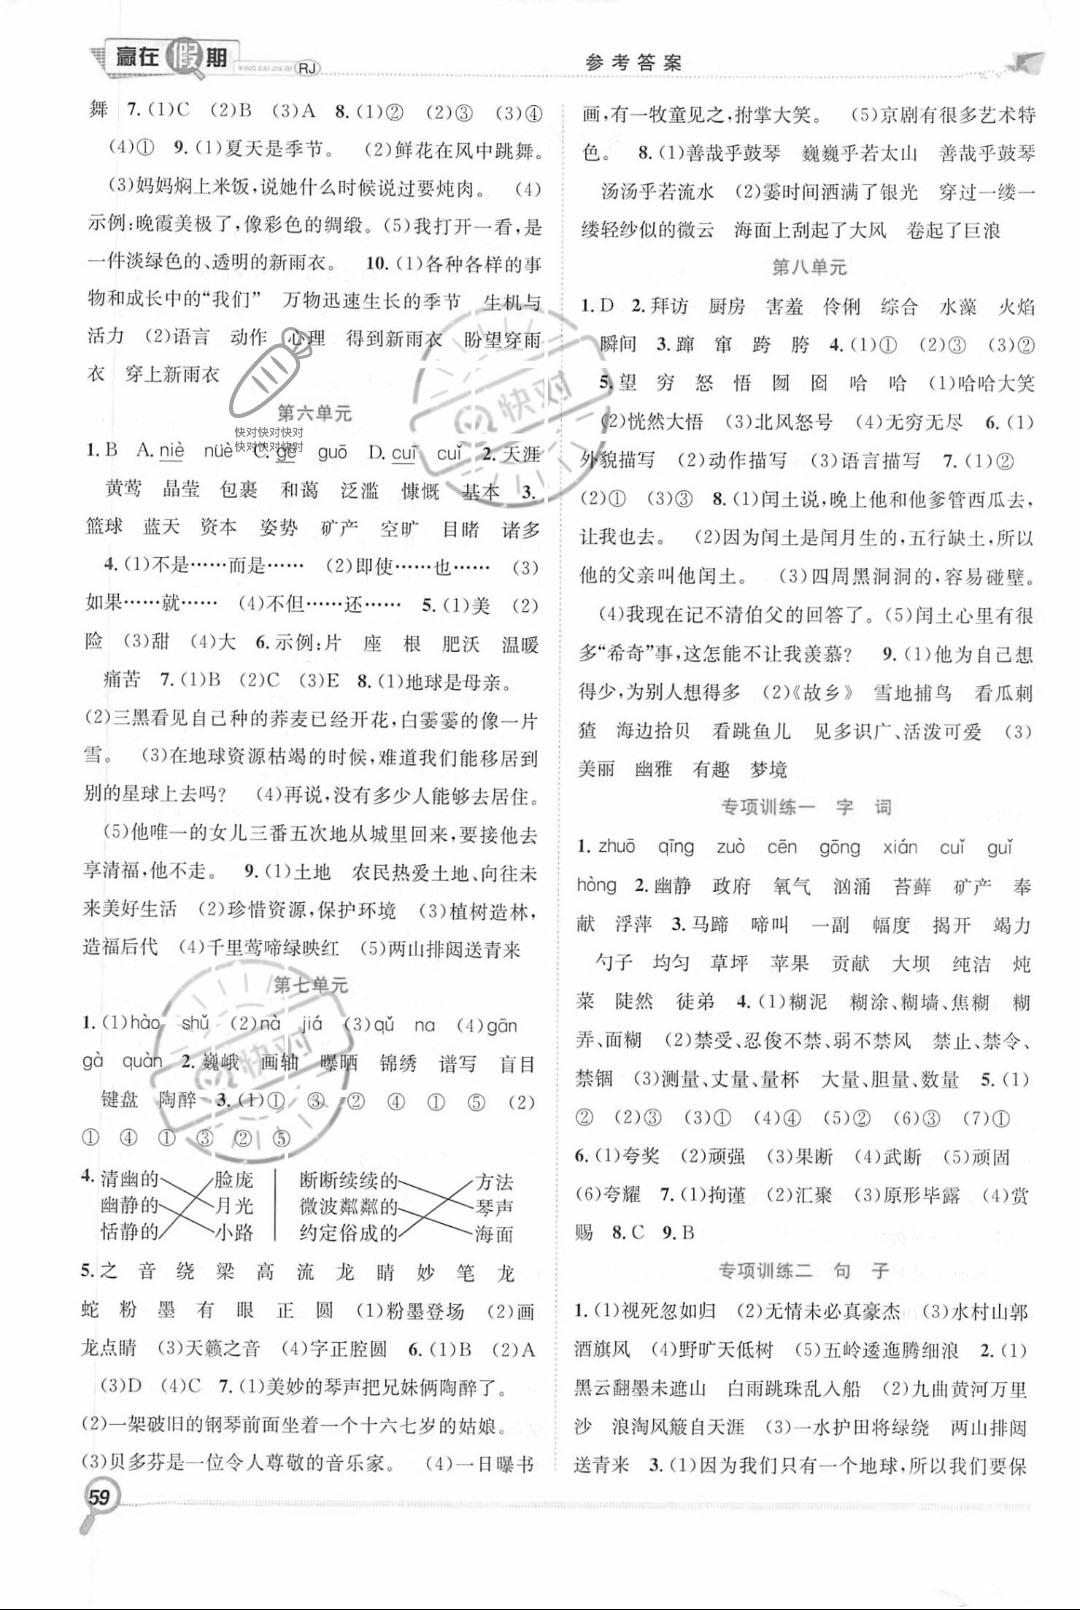 赢在假期
YING ZAI JIA QI
RJ
参考答案
舞 7.(1)C (2)B (3)A 8.(1)② (2)③ (3)④
(4)① 9.(1)夏天是季节。 (2)鲜花在风中跳舞。
(3)妈妈焖上米饭,说她什么时候说过要炖肉。 (4)
示例:晚霞美极了,像彩色的绸缎。(5)我打开一看,是
一件淡绿色的、透明的新雨衣。 10.(1)各种各样的事
物和成长中的“我们” 万物迅速生长的季节 生机与
活力 (2)语言 动作 心理 得到新雨衣 盼望穿雨
衣 穿上新雨衣
第六单元
1.B A.niè nüè C.gē guō D.cuī cuǐ 2.天涯
黄莺 晶莹 包裹 和蔼 泛滥 慷慨 基本 3.
篮球 蓝天 资本 姿势 矿产 空旷 目睹 诸多
4.(1)不是……而是…… (2)即使……也…… (3)
如果……就…… (4)不但……还…… 5.(1)美 (2)
险 (3)甜 (4)大 6.示例:片 座 根 肥沃 温暖
痛苦 7.(1)B (2)C (3)E 8.(1)地球是母亲。
(2)三黑看见自己种的荞麦已经开花,白霎霎的像一片
雪。 (3)在地球资源枯竭的时候,难道我们能移居到
别的星球上去吗? (4)再说,没有多少人能够去居住。
(5)他唯一的女儿三番五次地从城里回来,要接他去
享清福,他不走。 9.(1)土地 农民热爱土地、向往未
来美好生活 (2)珍惜资源,保护环境 (3)植树造林,
造福后代 (4)千里莺啼绿映红 (5)两山排闼送青来
第七单元
1.(1)hào shǔ (2)nà jiá (3)qǔ na (4)gān
gà quàn 2.巍峨 画轴 曝晒 锦绣 谱写 盲目
键盘 陶醉 3.(1)① ③ ② ④ ① ⑤ (2)
① ④ ① ③ ② ⑤
4.清幽的 脸庞 断断续续的 方法
幽静的 月光 微波粼粼的 琴声
恬静的 小路 约定俗成的 海面
5.之 音 绕 梁 高 流 龙 睛 妙 笔 龙
蛇 粉 墨 有 眼 正 圆 (1)粉墨登场 (2)画
龙点睛 (3)天籁之音 (4)字正腔圆 6.(1)B (2)A
(3)D (4)C 7.(1)美妙的琴声把兄妹俩陶醉了。
(2)一架破旧的钢琴前面坐着一个十六七岁的姑娘。
(3)贝多芬是一位令人尊敬的音乐家。 (4)一日曝书
画,有一牧童见之,拊掌大笑。 (5)京剧有很多艺术特
色。 8.(1)善哉乎鼓琴 巍巍乎若太山 善哉乎鼓琴
汤汤乎若流水 (2)霎时间洒满了银光 穿过一缕一
缕轻纱似的微云 海面上刮起了大风 卷起了巨浪
第八单元
1.D 2.拜访 厨房 害羞 伶俐 综合 水藻 火焰
瞬间 3.蹿 窜 跨 胯 4.(1)① (2)③ (3)②
5.望 穷 怒 悟 囫 囵 哈 哈 (1)哈哈大笑
(2)恍然大悟 (3)北风怒号 (4)无穷无尽 6.(1)
外貌描写 (2)动作描写 (3)语言描写 7.(1)②
(2)① (3)③ 8.(1)闰土说,晚上他和他爹管西瓜去,
让我也去。 (2)因为闰土是闰月生的,五行缺土,所以
他的父亲叫他闰土。 (3)四周黑洞洞的,容易碰壁。
(4)我现在记不清伯父的回答了。(5)闰土心里有很
多“希奇”事,这怎能不让我羡慕? 9.(1)他为自己想
得少,为别人想得多 (2)《故乡》 雪地捕鸟 看瓜刺
猹 海边拾贝 看跳鱼儿 见多识广、活泼可爱 (3)
美丽 幽雅 有趣 梦境
专项训练一 字 词
1.zhuō qīng zuò cēn gōng xián cuǐ guǐ
hòng 2.幽静 政府 氧气 汹涌 苔藓 矿产 奉
献 浮萍 3.马蹄 啼叫 一副 幅度 揭开 竭力
勺子 均匀 草坪 苹果 贡献 大坝 纯洁 炖
菜 陡然 徒弟 4.(1)糊泥 糊涂、糊墙、焦糊 糊
弄、面糊 (2)禁受、忍俊不禁、弱不禁风 禁止、禁令、
禁锢 (3)测量、丈量、量杯 大量、胆量、数量 5.(1)
② (2)③ (3)① (4)④ (5)② (6)③ (7)①
6.(1)夸奖 (2)顽强 (3)果断 (4)武断 (5)顽固
(6)夸耀 7.(1)拘谨 (2)汇聚 (3)原形毕露 (4)赏
赐 8.C 9.B
专项训练二 句 子
1.(1)视死忽如归 (2)无情未必真豪杰 (3)水村山郭
酒旗风 (4)野旷天低树 (5)五岭逶迤腾细浪 2.(1)
黑云翻墨未遮山 白雨跳珠乱入船 (2)九曲黄河万里
沙 浪淘风簸自天涯 (3)一水护田将绿绕 两山排闼
送青来 3.(1)因为我们只有一个地球,所以我们要保
快对快对快对
快对快对快对
快对
快对
59